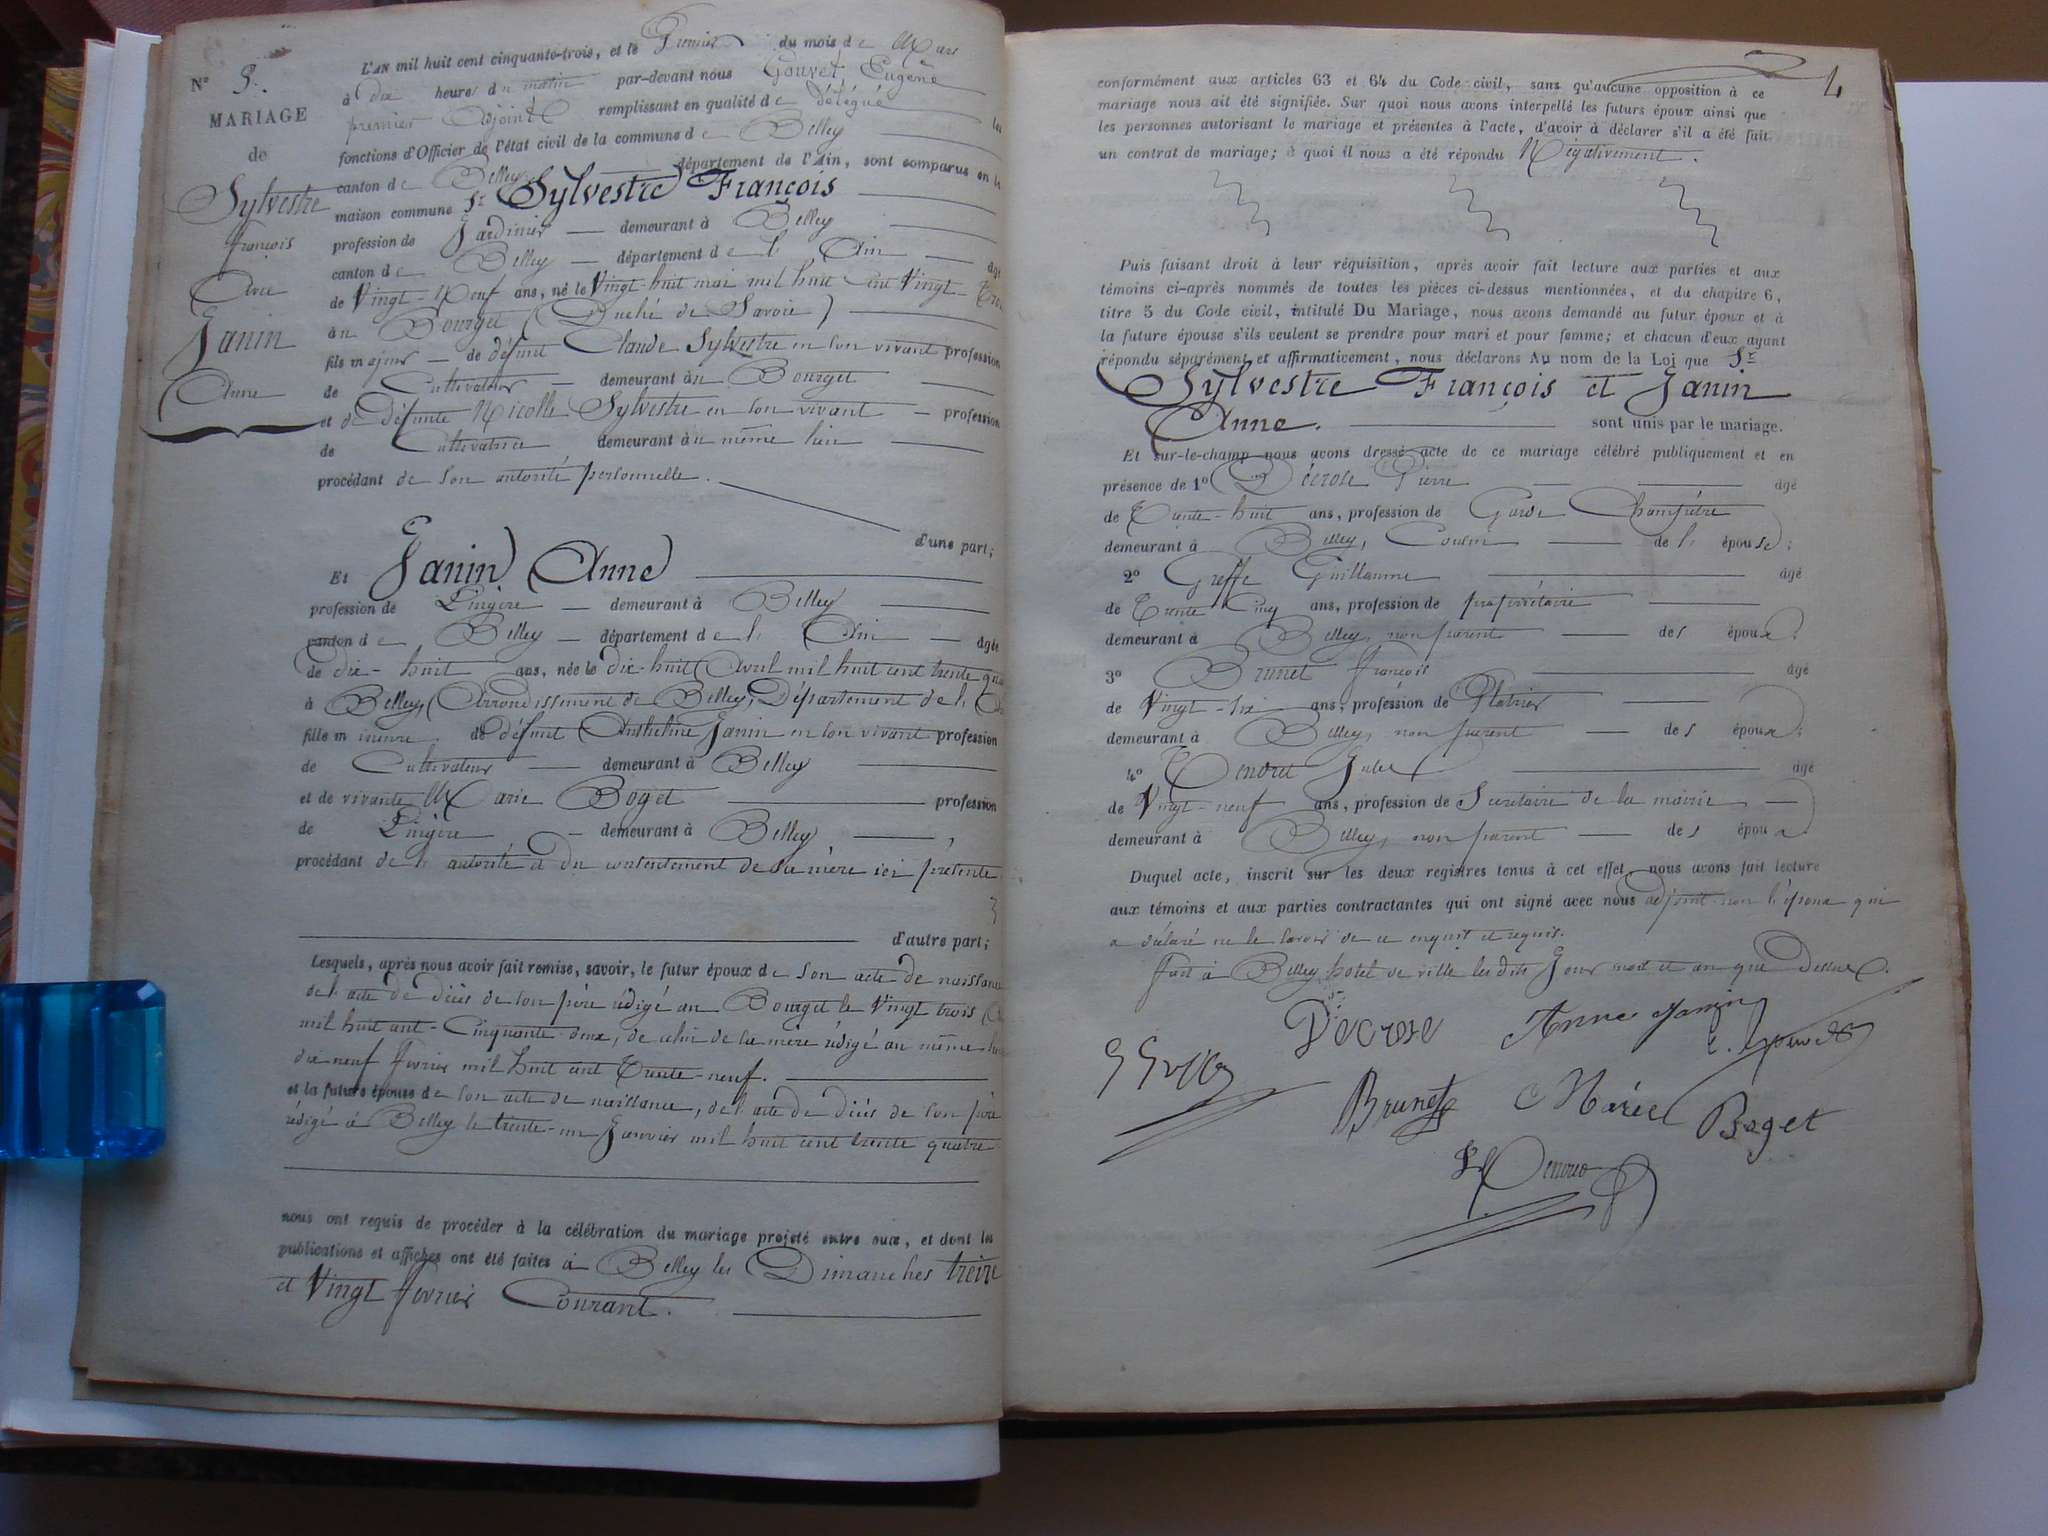 N° 9.
MARIAGE
de
Sylvestre
françois
Avec
Janin
Anne
L'AN mil huit cent cinquante-trois, et le Premier du mois de Mars
à dix heures du matin par-devant nous Gouvet, Eugène
premier Adjoint remplissant en qualité de délégué les
fonctions d'Officier de l'état civil de la commune de Belley
canton de Belley département de l'Ain, sont comparus en la
maison commune Sr Sylvestre François
profession de Jardinier — demeurant à Belley
canton de Belley — département de l' Ain — âgé
de Vingt-Neuf ans, né le Vingt-huit mai mil huit cent Vingt-
au Bourget (Duché de Savoie)
fils majeur — de défunt Claude Sylvestre en son vivant profession
de Cultivateur — demeurant au Bourget
et de défunte Nicolle Sylvestre en son vivant — profession
de Cultivatrice demeurant au même lieu
procédant de son autorité personnelle.
d'une part;
Et Janin Anne
profession de Lingère — demeurant à Belley
canton de Belley — département de l' Ain — âgée
de dix-huit ans, née le dix-huit Avril mil huit cent trente
à Belley, (Arrondissement de Belley, Département de l'
fille mineure de défunt Anthelme Janin en son vivant profession
de Cultivateur — demeurant à Belley
et de vivante Marie Boget profession
de Lingère — demeurant à Belley
procédant de l' autorité et du consentement de sa mère ici présente
d'autre part;
Lesquels, après nous avoir fait remise, savoir, le futur époux de son acte de naissance
de l'acte de décès de son père rédigé au Bourget le Vingt trois
mil huit cent-Cinquante deux, de celui de sa mère rédigé au même lieu
dix neuf février mil huit cent Trente-neuf.
et la future épouse de son acte de naissance, de l'acte de décès de son père
rédigé à Belley le trente-un Janvier mil huit cent trente quatre
nous ont requis de procéder à la célébration du mariage projeté entre eux, et dont les
publications et affiches ont été faites à Belley les Dimanches treize
et Vingt février Courant.
4
conformément aux articles 63 et 64 du Code civil, sans qu'aucune opposition à ce
mariage nous ait été signifiée. Sur quoi nous avons interpellé les futurs époux ainsi que
les personnes autorisant le mariage et présentes à l'acte, d'avoir à déclarer s'il a été fait
un contrat de mariage; à quoi il nous a été répondu Négativement.
Puis faisant droit à leur réquisition, après avoir fait lecture aux parties et aux
témoins ci-après nommés de toutes les pièces ci-dessus mentionnées, et du chapitre 6,
titre 5 du Code civil, intitulé Du Mariage, nous avons demandé au futur époux et à
la future épouse s'ils veulent se prendre pour mari et pour femme; et chacun d'eux ayant
répondu séparément et affirmativement, nous déclarons Au nom de la Loi que Sr
Sylvestre François et Janin
Anne. sont unis par le mariage.
Et sur-le-champ nous avons dressé acte de ce mariage célébré publiquement et en
présence de 1° Décrose Pierre âgé
de Trente-huit ans, profession de Garde Champêtre
demeurant à Belley, Cousin — de l' épouse;
2° Greffe Guillaume âgé
de Trente Cinq ans, profession de propriétaire
demeurant à Belley, non parent — des époux;
3° Brunet françois âgé
de Vingt-six ans, profession de Platrier
demeurant à Belley, non parent — des époux;
4° Tendret Jules âgé
de Vingt-neuf ans, profession de Secrétaire de la mairie
demeurant à Belley, non parent — des époux
Duquel acte, inscrit sur les deux registres tenus à cet effet, nous avons fait lecture
aux témoins et aux parties contractantes qui ont signé avec nous adjoint non l'époux qui
a déclaré ne le savoir de ce enquis et requis.
fait à Belley hôtel de ville les dits Jour mois et an que Dessus.
Décrose Anne Janin
Brunet Marie Boget